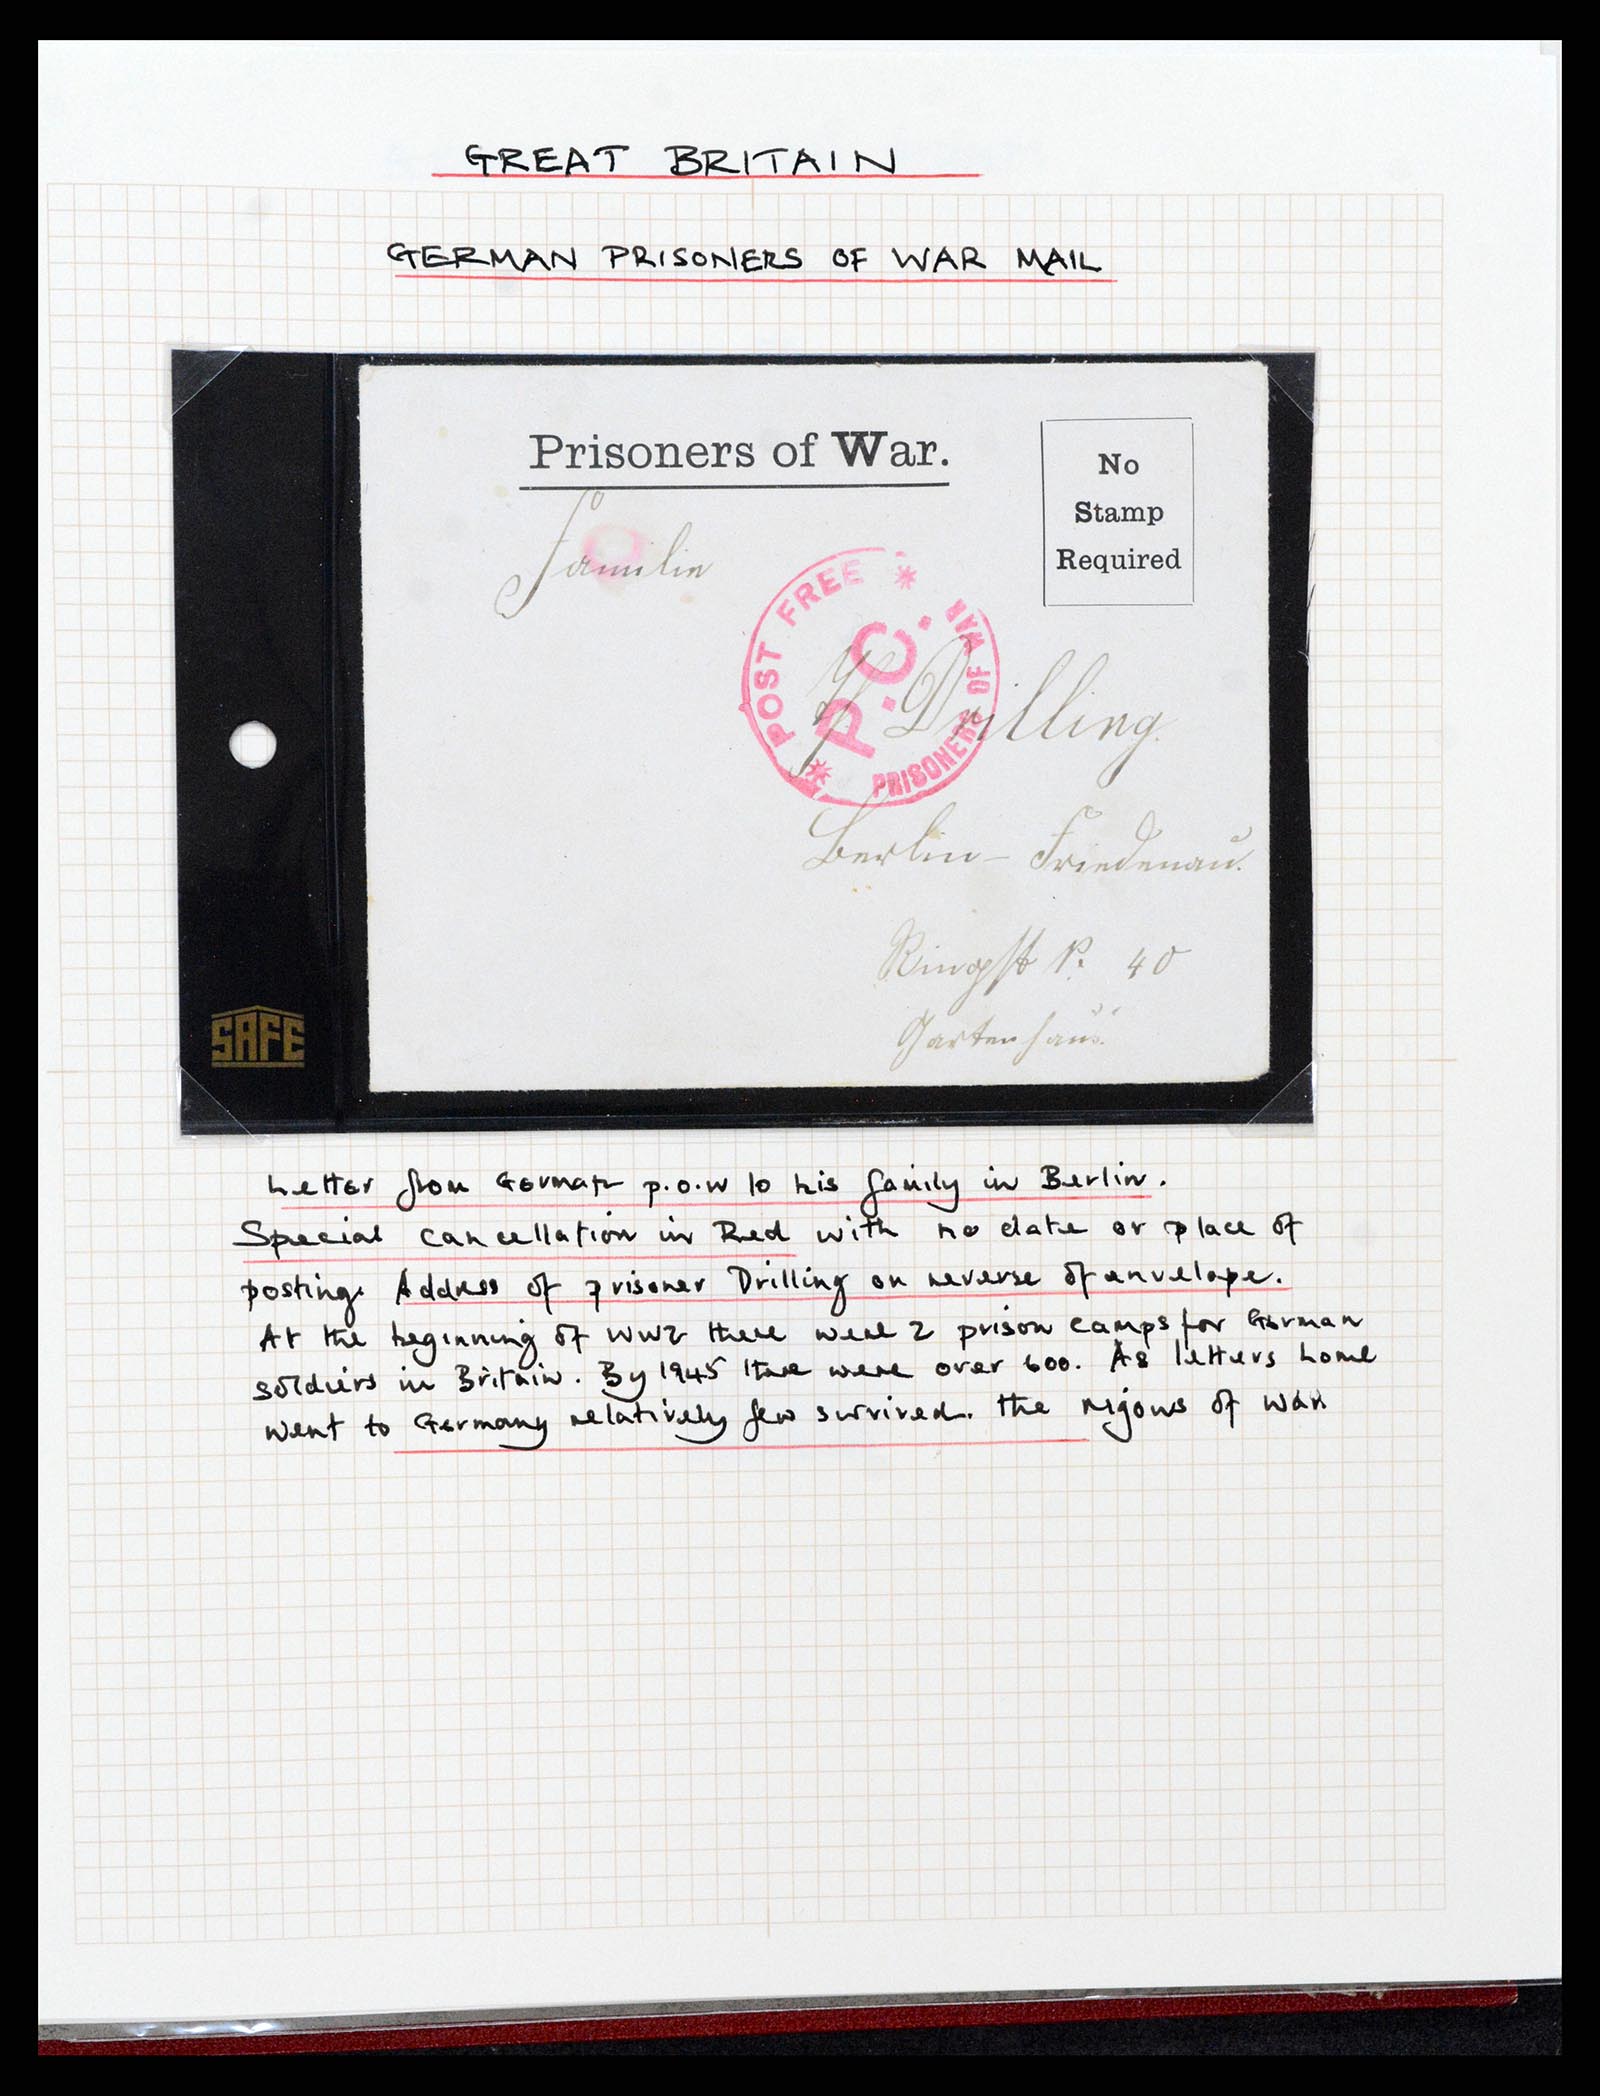 GREAT BRITAIN
GERMAN PRISONERS OF WAR MAIL
Prisoners of War.
No
Stamp
Required
Familie
POST FREE
P.C.
PRISONERS OF WAR
Drilling.
Berlin - Friedenau.
Ringstr. 40
Gartenhaus.
SAFE
Letter from German p.o.w to his family in Berlin.
Special cancellation in Red with no date or place of
posting. Address of prisoner Drilling on reverse of envelope.
At the beginning of WW2 there were 2 prison camps for German
soldiers in Britain. By 1945 there were over 600. As letters home
went to Germany relatively few survived. the rigours of war